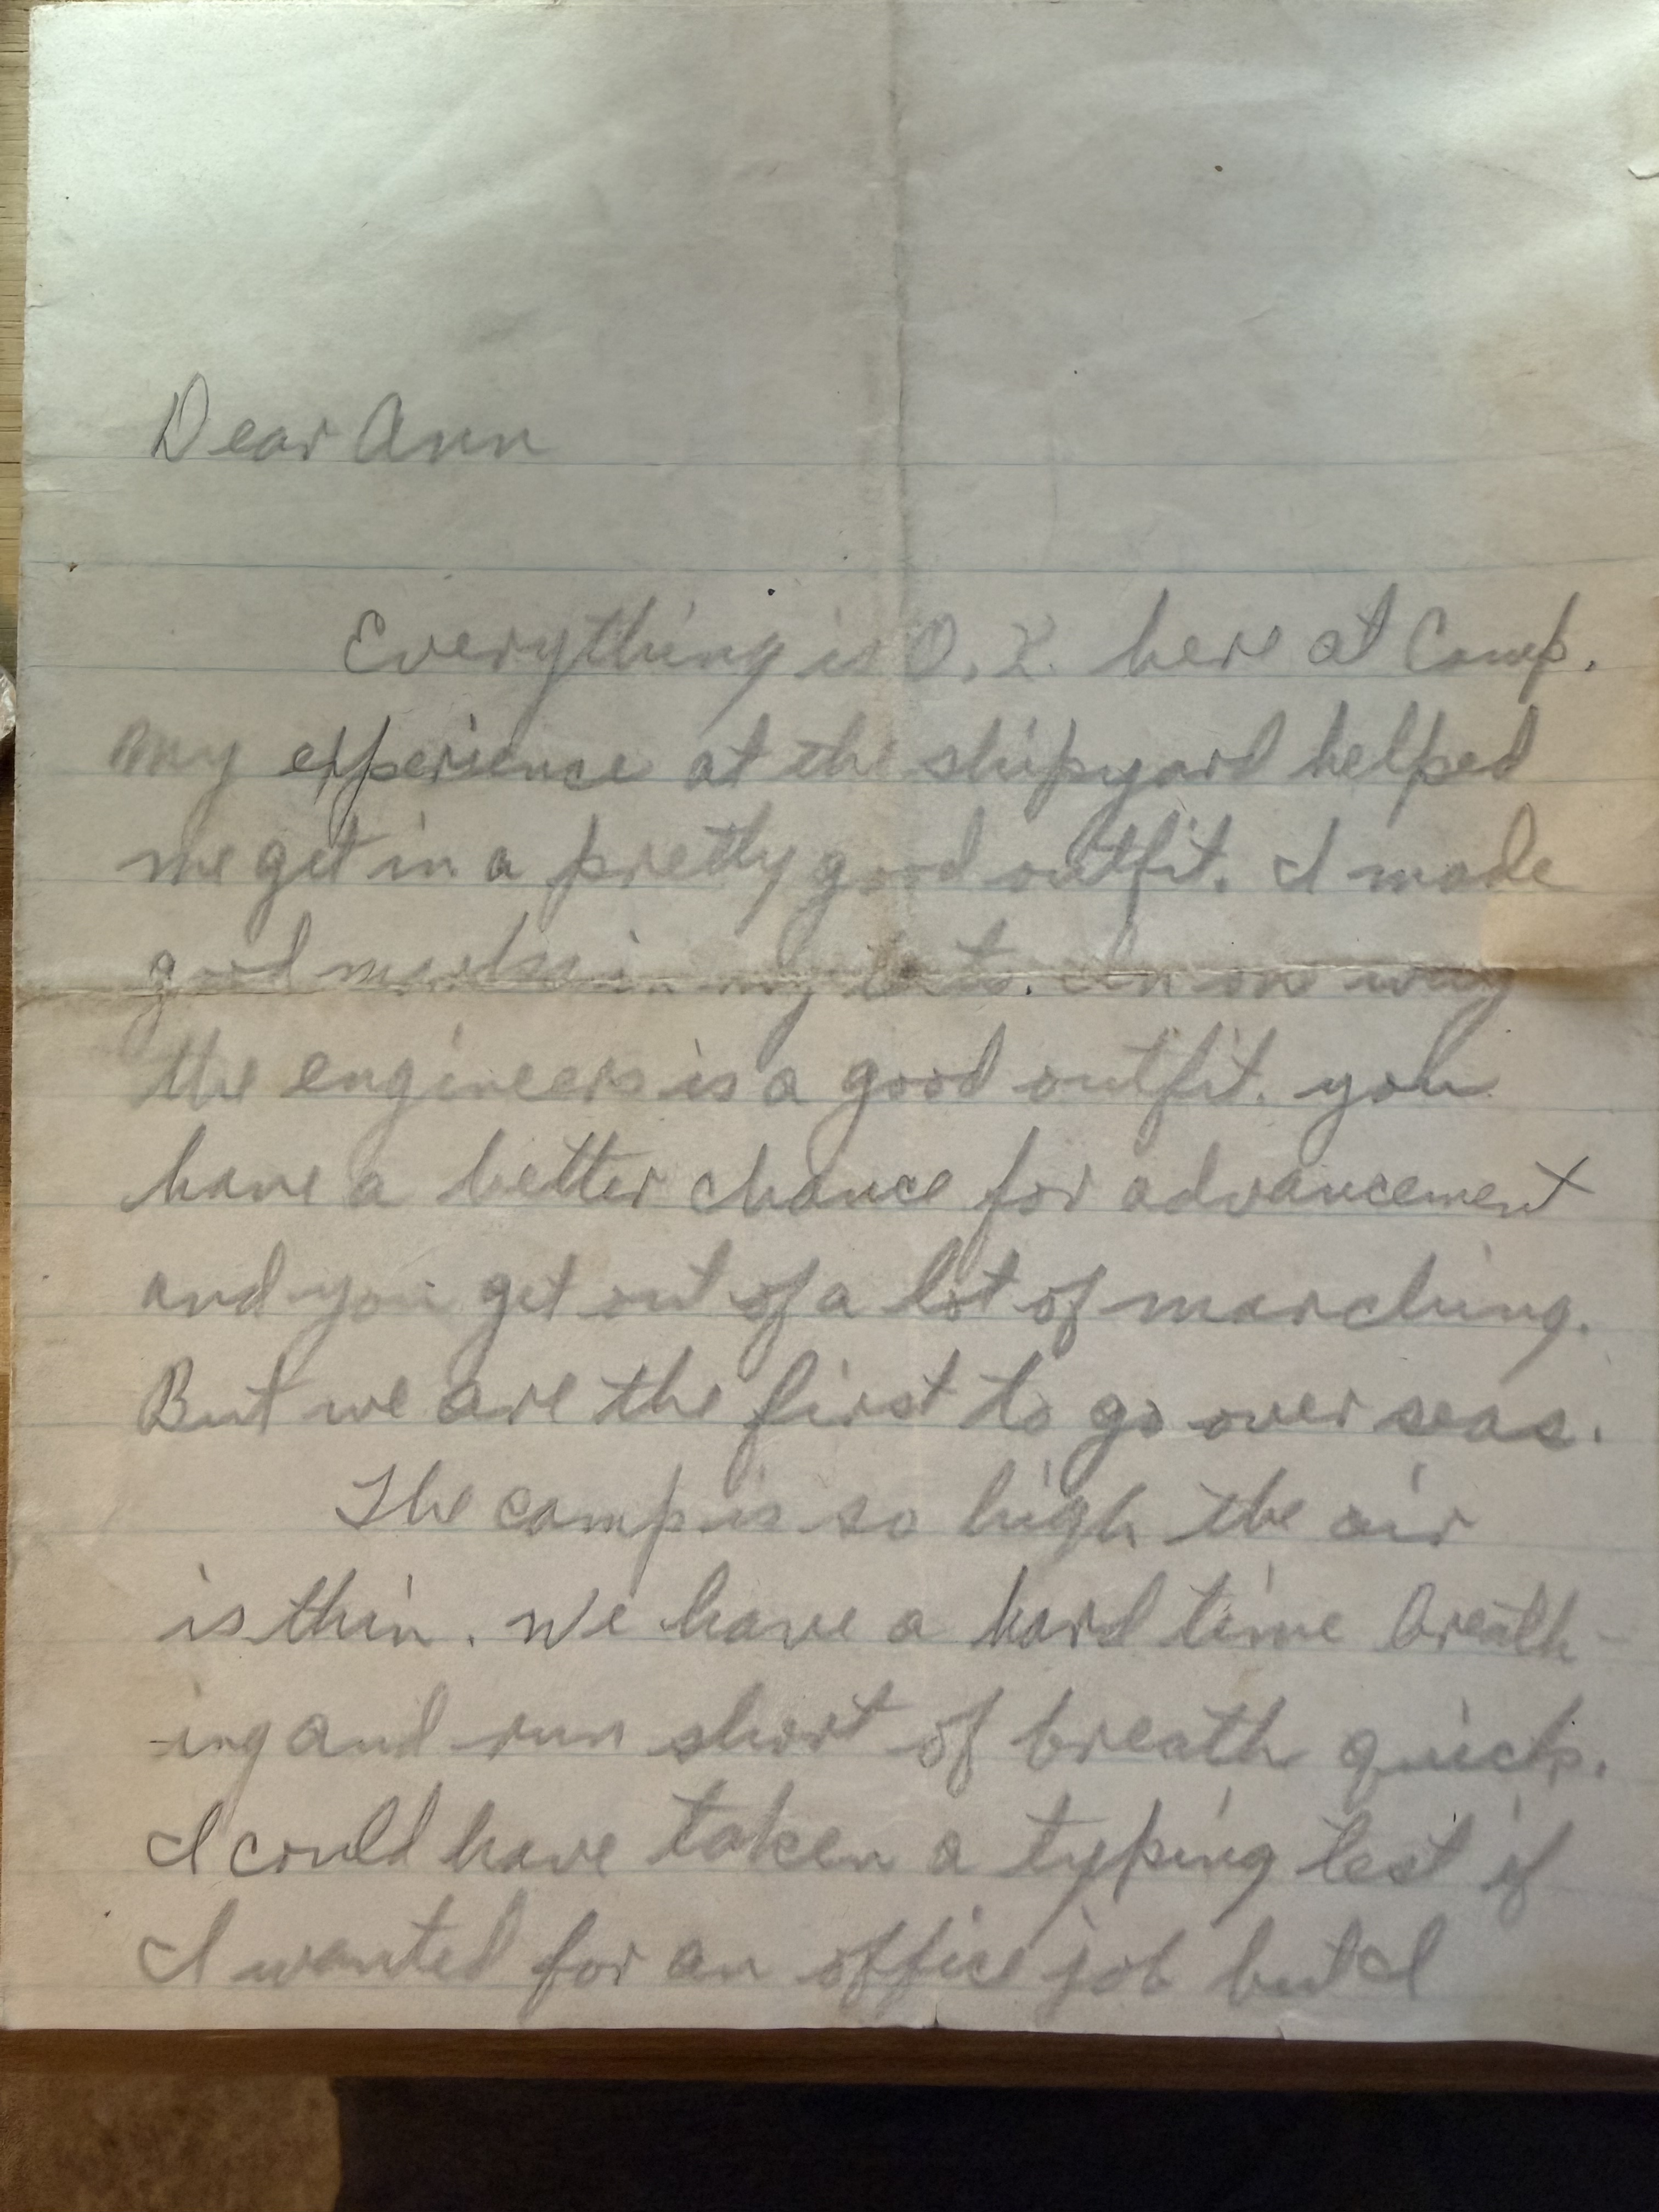 Dear Ann
Everything is O.K. here at Camp.
My experience at the shipyard helped
me get in a pretty good outfit. I made
good marks in my tests. In one way
the engineers is a good outfit. you
have a better chance for advancement
and you get out of a lot of marching.
But we are the first to go over seas.
The camp is so high the air
is thin. We have a hard time breath-
ing and run short of breath quick.
I could have taken a typing test if
I wanted for an office job but I